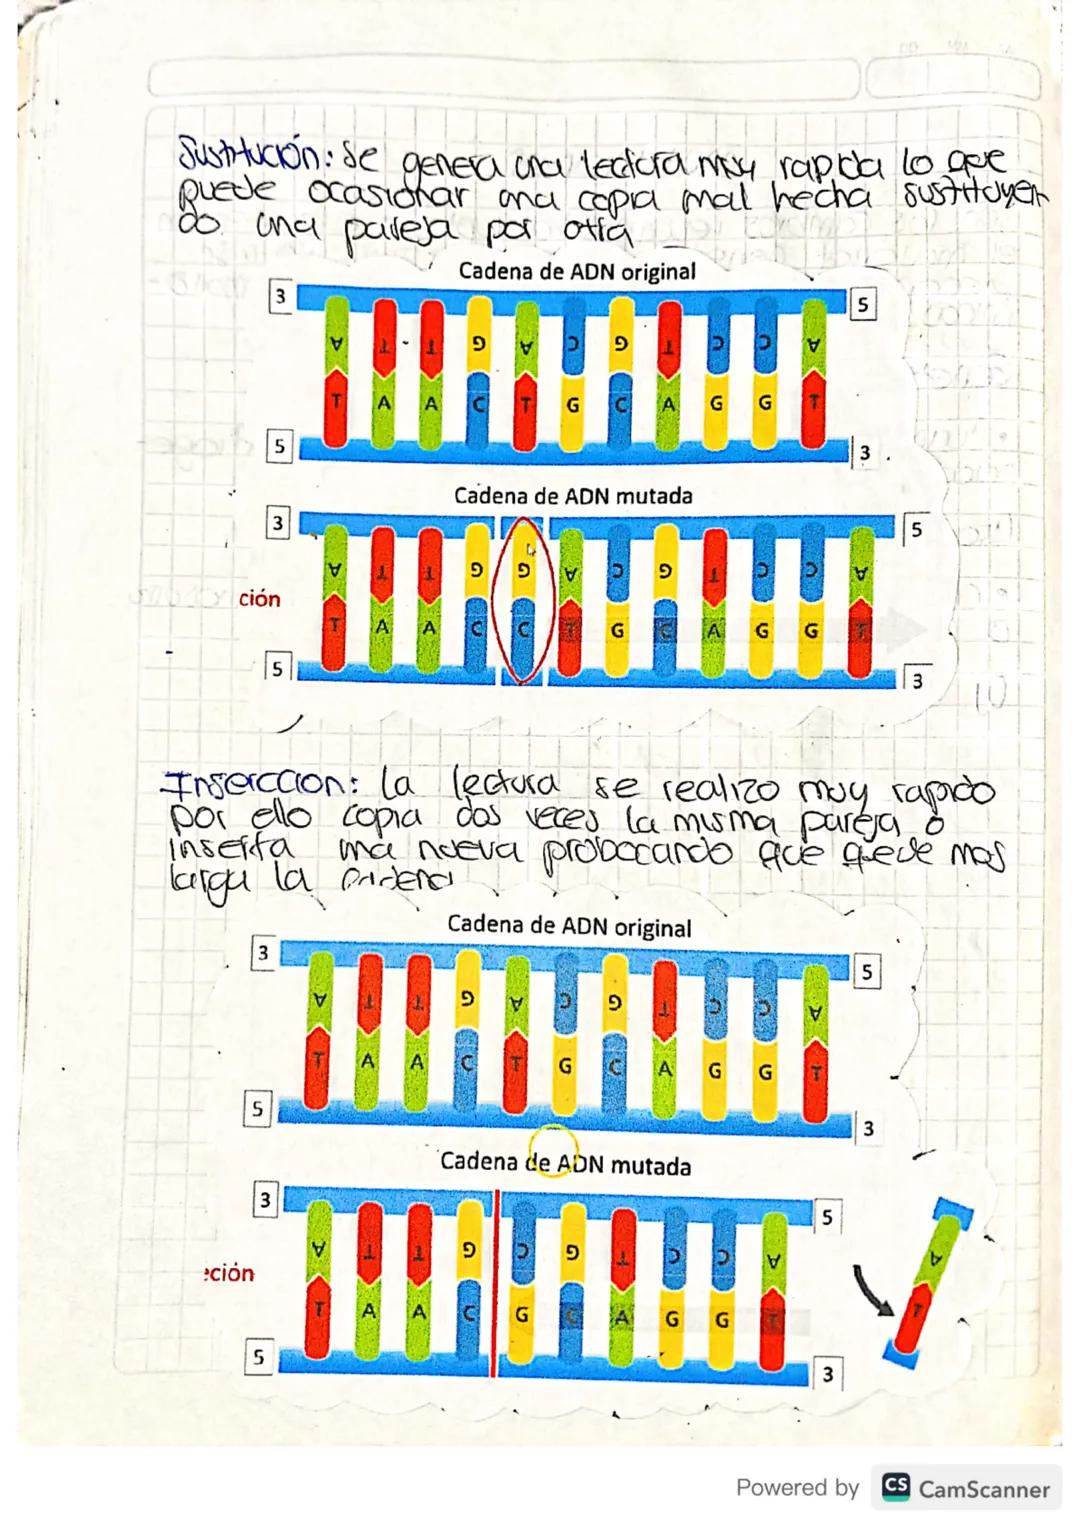 Sustitución: Se genera una lectura muy rapida lo que
puede ocasionar una copia mal hecha sustituyen
do una pareja por otra
Cadena de ADN original
3 5
A T T G A C G T C C A
T A A C T G C A G G T
5 3
Cadena de ADN mutada
3 5
A T T G G A C G T C C A
ción
T A A C C T G C A G G T
5 3
Inserccion: la lectura se realizo muy rapido
por ello copia dos veces la misma pareja o
inserta una nueva probocando que quede mas
larga la cadena
Cadena de ADN original
3 5
A T T G A C G T C C A
T A A C T G C A G G T
5 3
Cadena de ADN mutada
3 5
A T T G C G T C C A A
eción
T A A C G C A G G T T
5 3
Powered by CS CamScanner